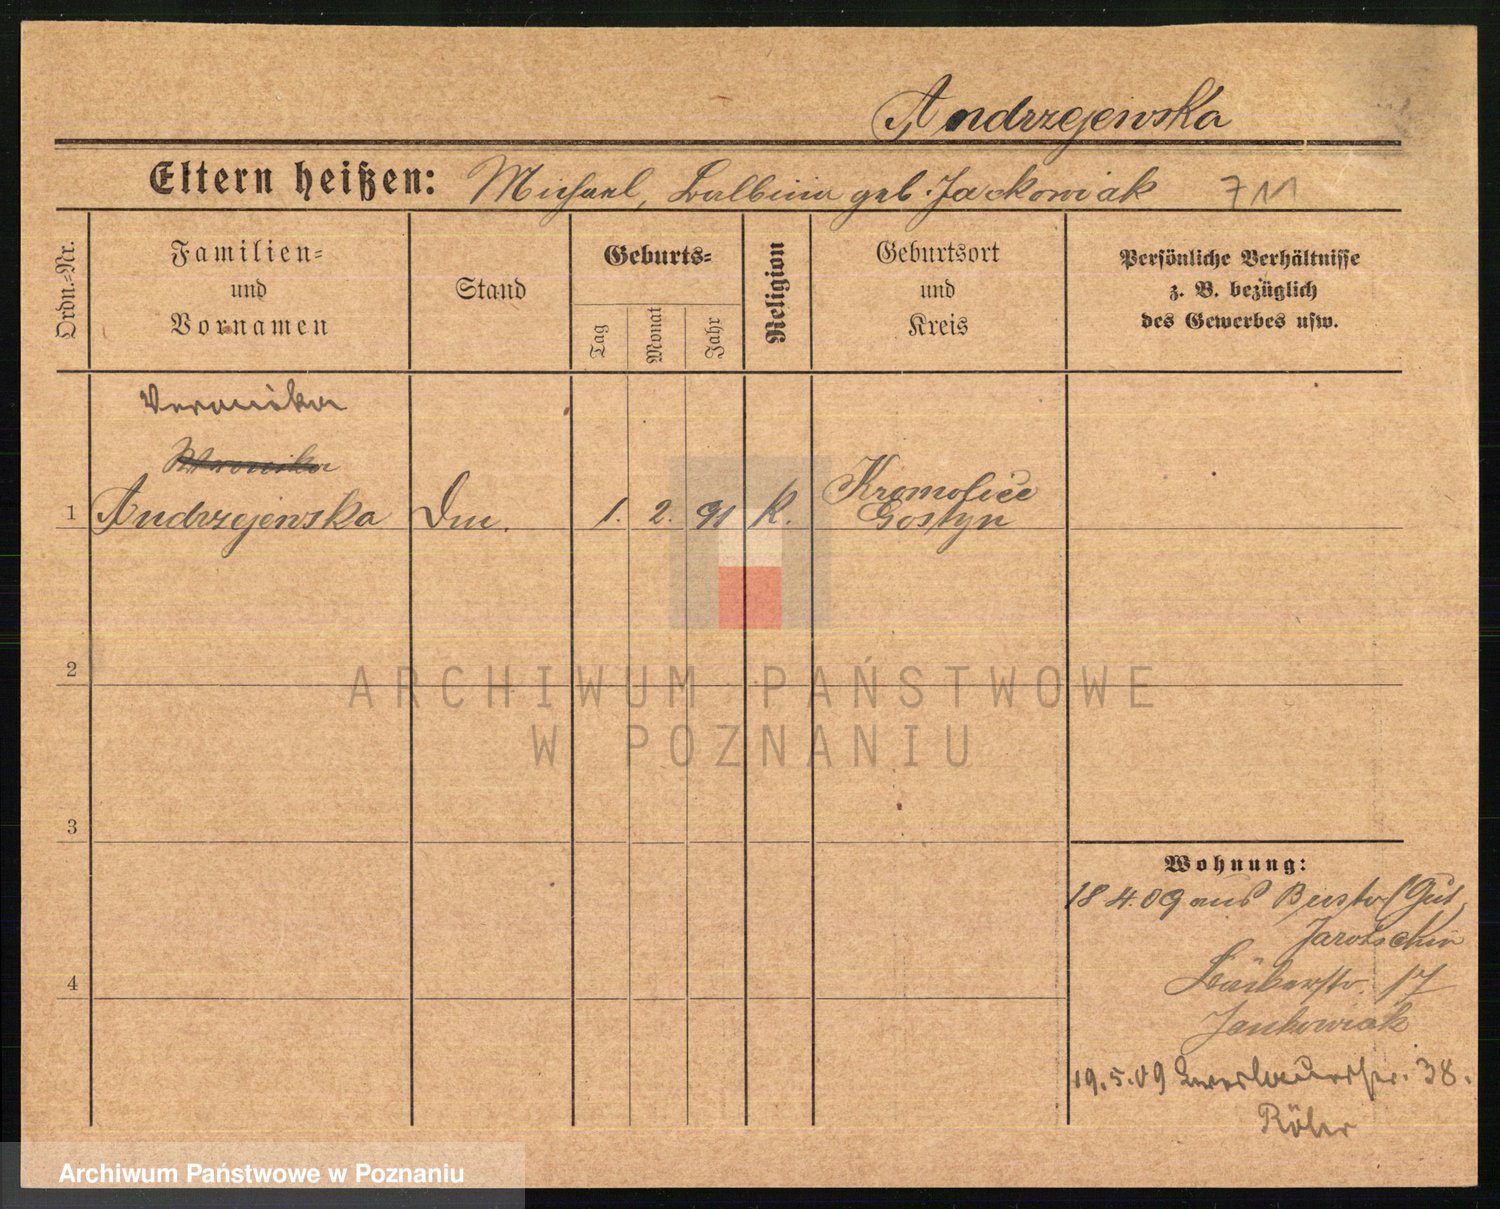 Andrzejewska
Eltern heißen: Michael, Balbina geb. Jackowiak 711
Ordn.-Nr.
Familien-
und
Vornamen
Stand
Geburts-
Tag
Monat
Jahr
Religion
Geburtsort
und
Kreis
Persönliche Verhältnisse
z. B. bezüglich
des Gewerbes usw.
Veronika
1 Andrzejewska 1. 2. 91 K. Kromolice
Gostyn
2
3
4
Wohnung:
18 4. 09 aus Gut,
Jarotschin
Bäckerstr. 17
Jankowiak
19. 5. 09 38.
Röhr
ARCHIWUM PAŃSTWOWE
W POZNANIU
Archiwum Państwowe w Poznaniu